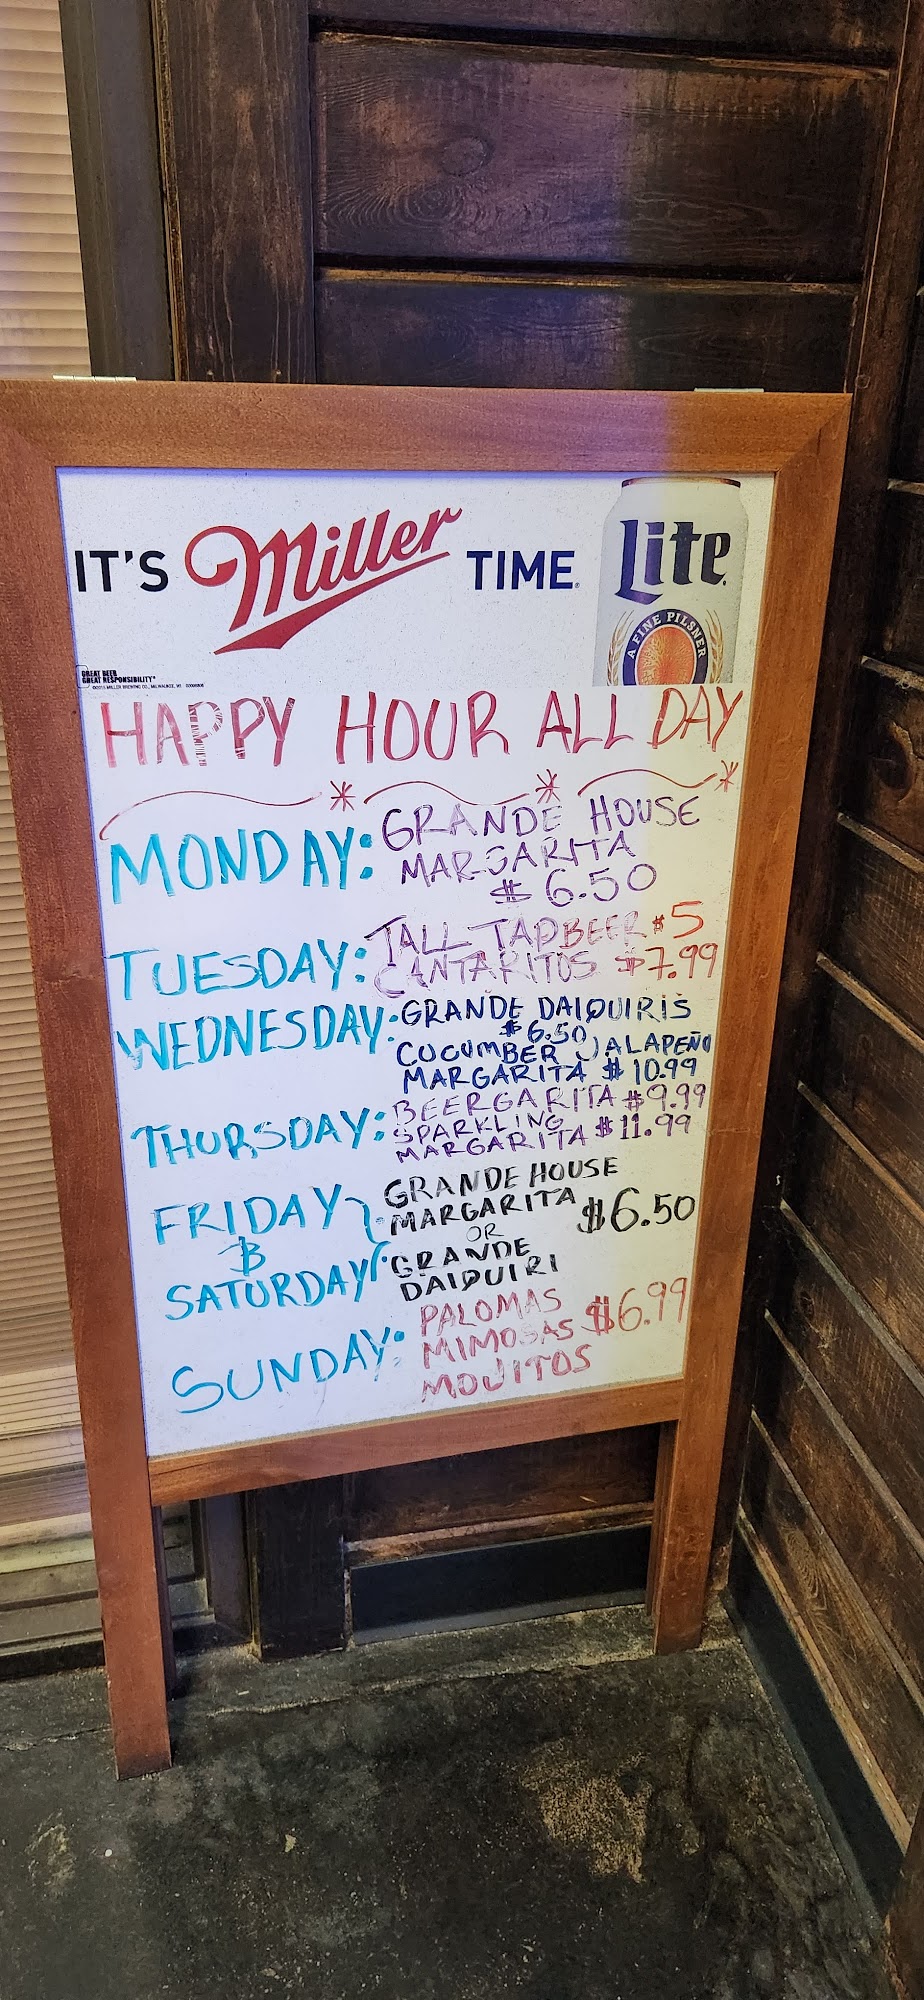 IT'S Miller TIME
Lite
A FINE PILSNER
GREAT BEER
GREAT RESPONSIBILITY
HAPPY HOUR ALL DAY
MONDAY: GRANDE HOUSE
MARGARITA
$6.50
TUESDAY: TALL TAP BEER $5
CANTARITOS $7.99
WEDNESDAY: GRANDE DAIQUIRIS
$6.50
CUCUMBER JALAPEÑO
MARGARITA $10.99
THURSDAY: BEERGARITA $9.99
SPARKLING
MARGARITA $11.99
FRIDAY
&
SATURDAY
GRANDE HOUSE
MARGARITA
OR
GRANDE
DAIQUIRI
$6.50
SUNDAY:
PALOMAS
MIMOSAS
MOJITOS
$6.99